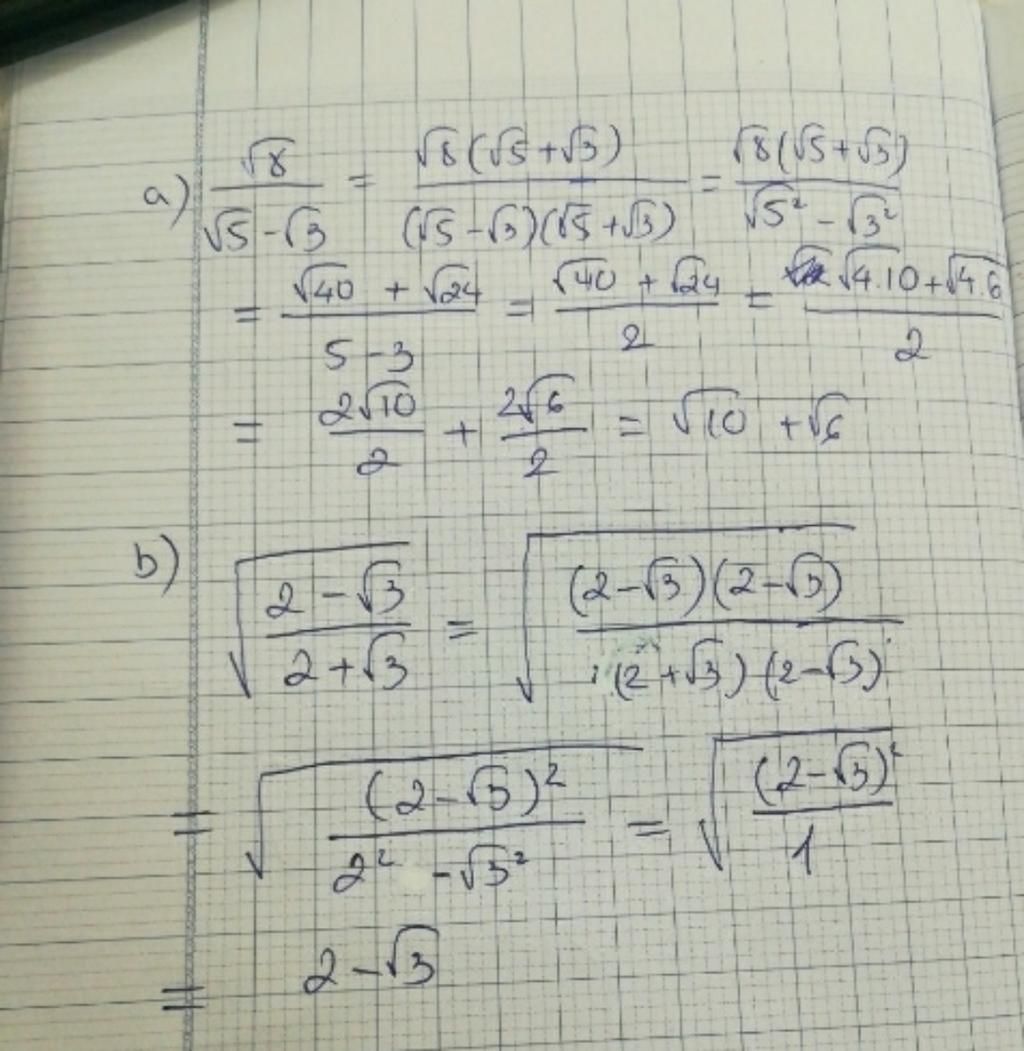 a) √8/(√5-√3) = √8(√5+√3)/((√5-√3)(√5+√3)) = √8(√5+√3)/(√5²-√3²)
= (√40+√24)/(5-3) = (√40+√24)/2 = (√4.10+√4.6)/2
= 2√10/2 + 2√6/2 = √10+√6
b) √((2-√3)/(2+√3)) = √((2-√3)(2-√3)/((2+√3)(2-√3)))
= √((2-√3)²/(2²-√3²)) = √((2-√3)²/1)
= 2-√3